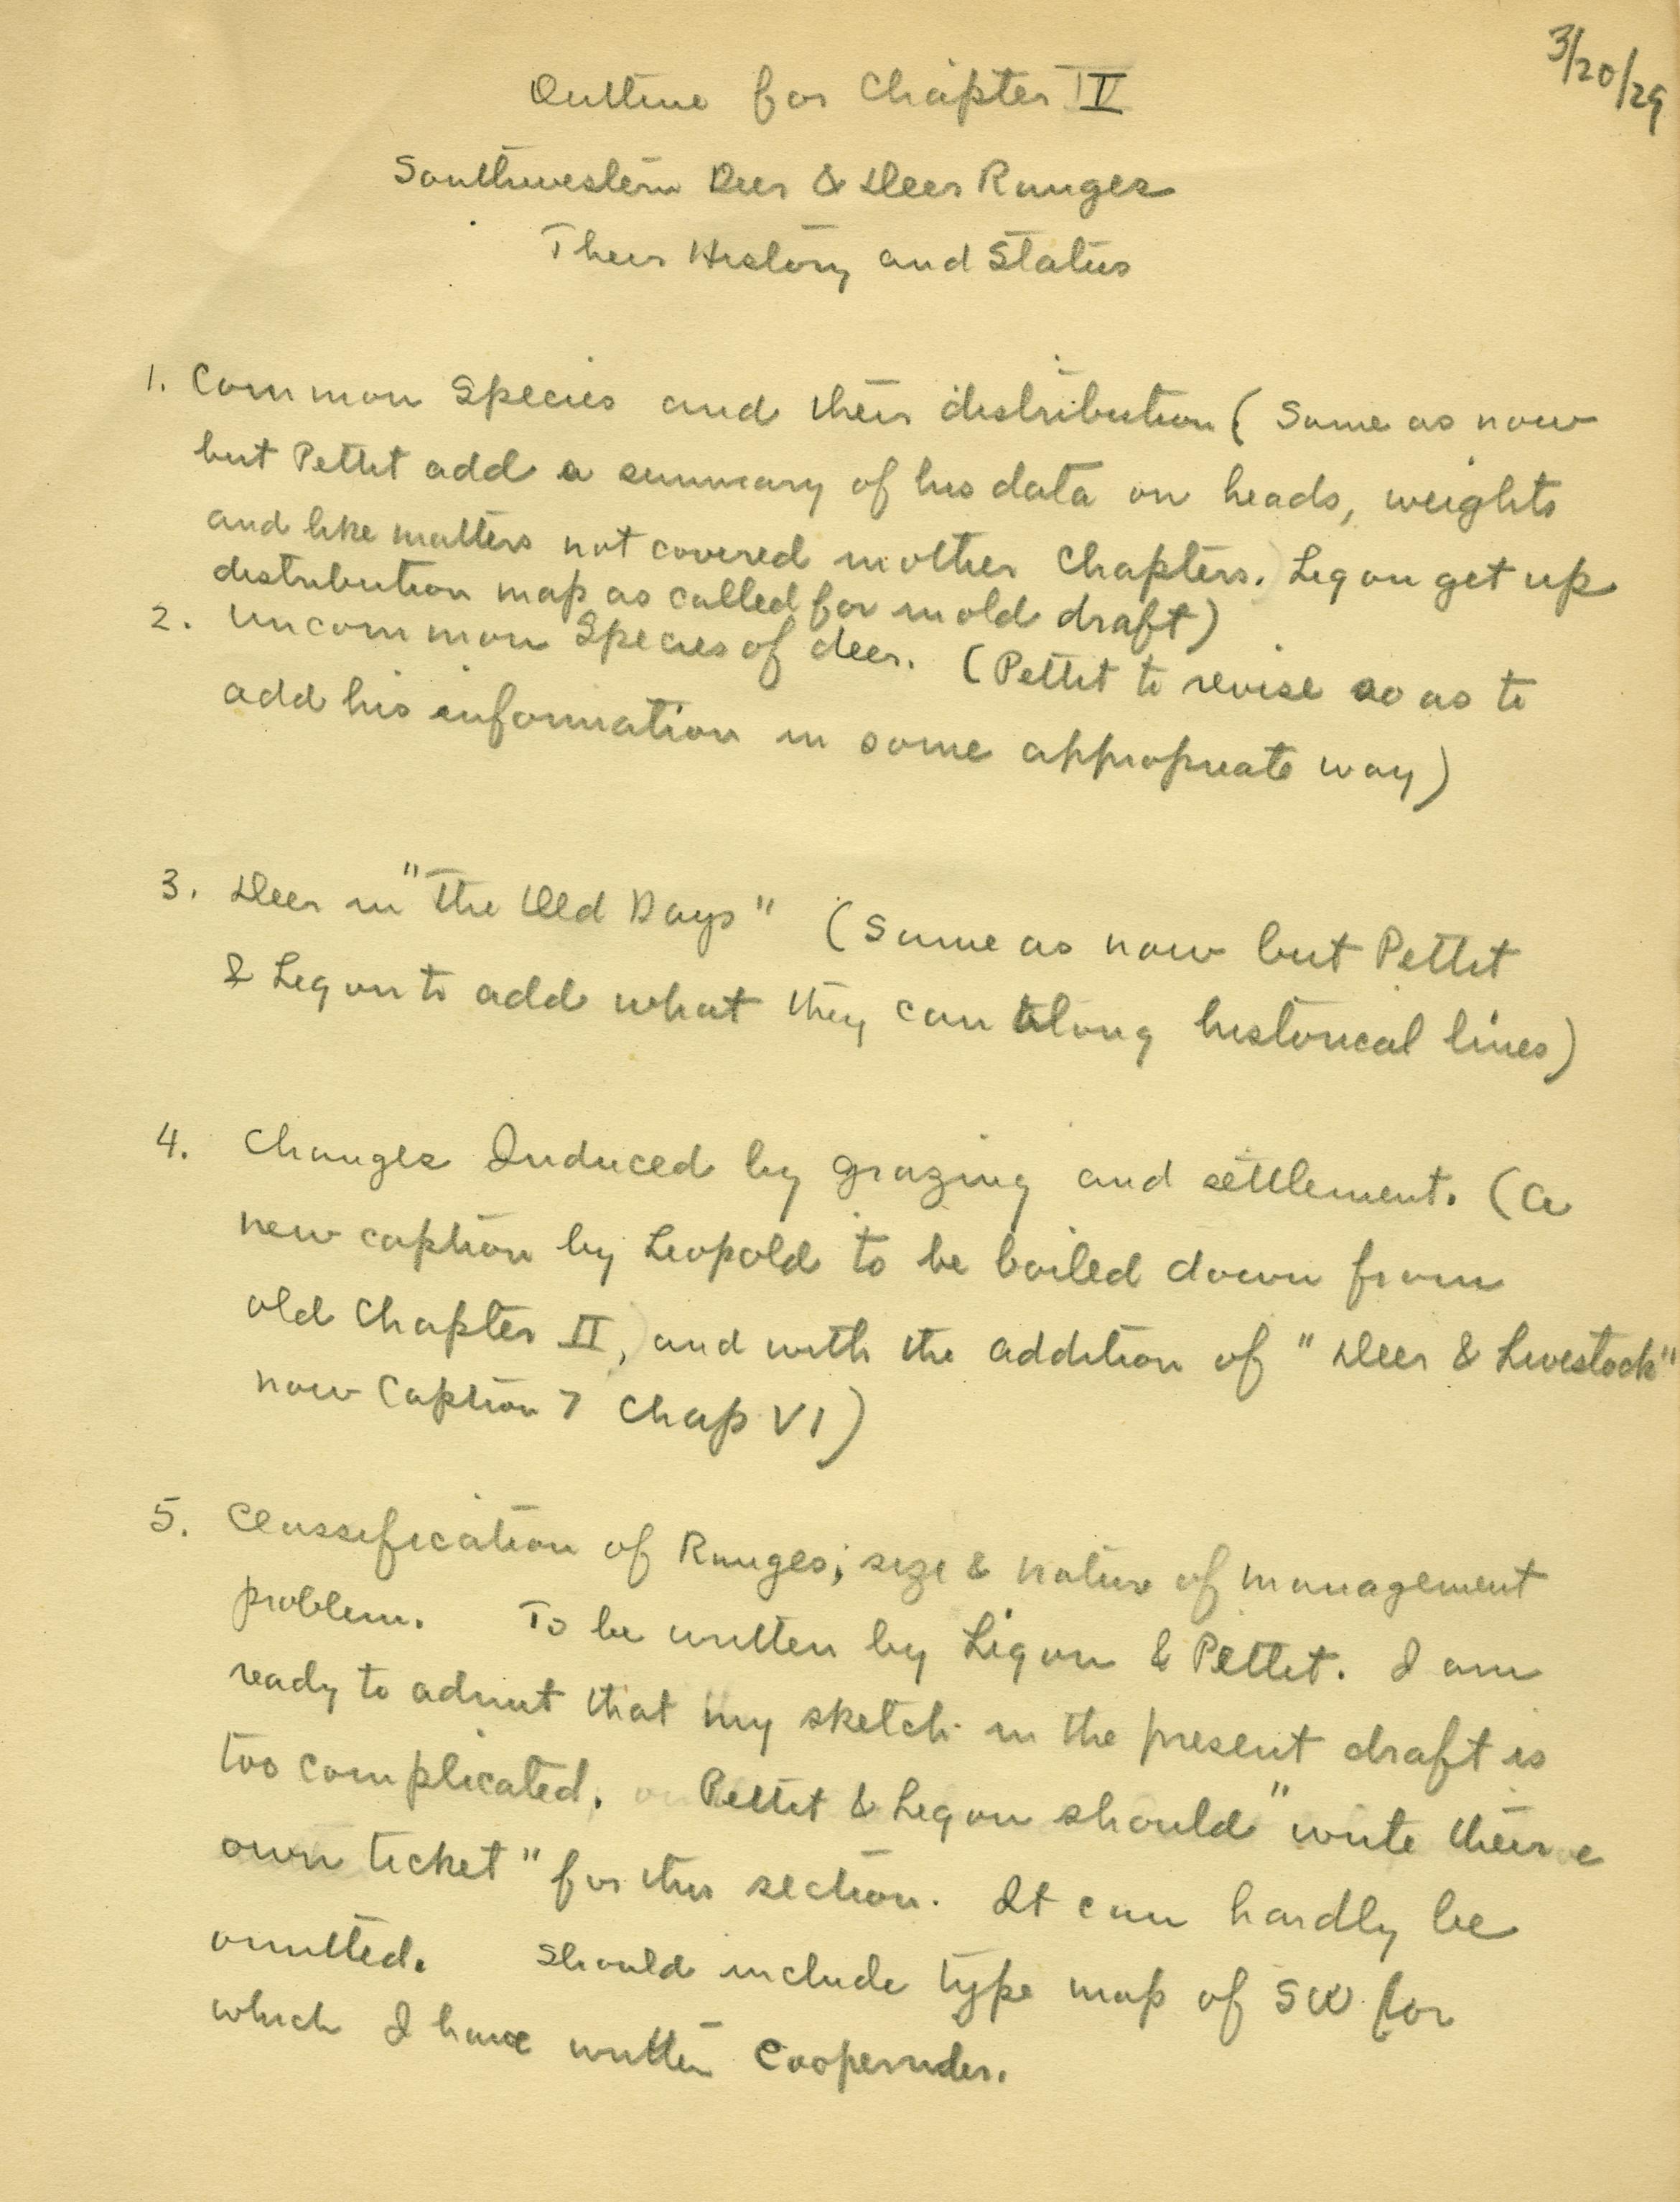 3/20/29
Outline for Chapter IV
Southwestern Deer & Deer Ranges
Their History and Status
1. Common Species and their distribution (Same as now
but Pettit add a summary of his data on heads, weights
and like matters not covered in other Chapters. Ligon get up
distribution map as called for in old draft)
2. Uncommon Species of deer. (Pettit to revise so as to
add his information in some appropriate way)
3. Deer in "the Old Days" (Same as now but Pettit
& Ligon to add what they can along historical lines)
4. Changes Induced by grazing and settlement. (A
new caption by Leopold to be boiled down from
old Chapter II, and with the addition of "Deer & Livestock"
now Caption 7 Chap VI)
5. Classification of Ranges; size & nature of management
problem. To be written by Ligon & Pettit. I am
ready to admit that my sketch in the present draft is
too complicated. Pettit & Ligon should "write their
own ticket" for this section. It can hardly be
omitted. Should include type map of SW for
which I have written Cooperrider.